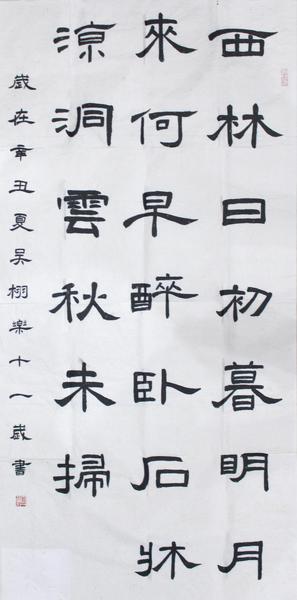 西林日初暮明月
來何早醉卧石牀
涼洞雲秋未掃
歲在辛丑夏吴栩樂十一歲書